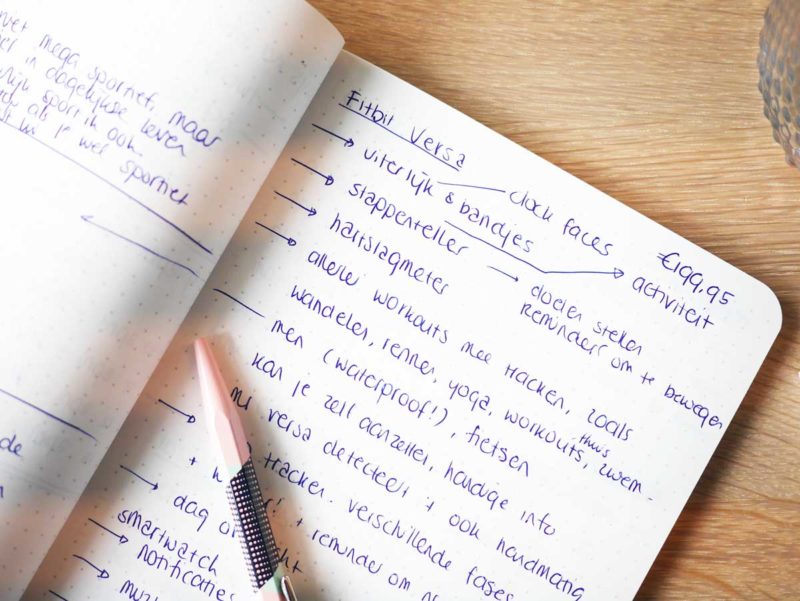 niet mega sportief, maar
in dagelijkse leven
sport ik ook
als je wel sportief
Fitbit Versa
€199,95
→ uiterlijk & bandjes — clock faces
→ stappenteller → activiteit
→ hartslagmeter → doelen stellen
reminder om te bewegen
→ allerlei workouts mee tracken, zoals
wandelen, rennen, yoga, workouts, thuis zwem-
men (waterproof!), fietsen
— kan je zelf aanzetten, handige info
versa detecteert + ook handmatig
tracker. verschillende fases
+ reminder om
→ dag
→ smartwatch
→ notificaties